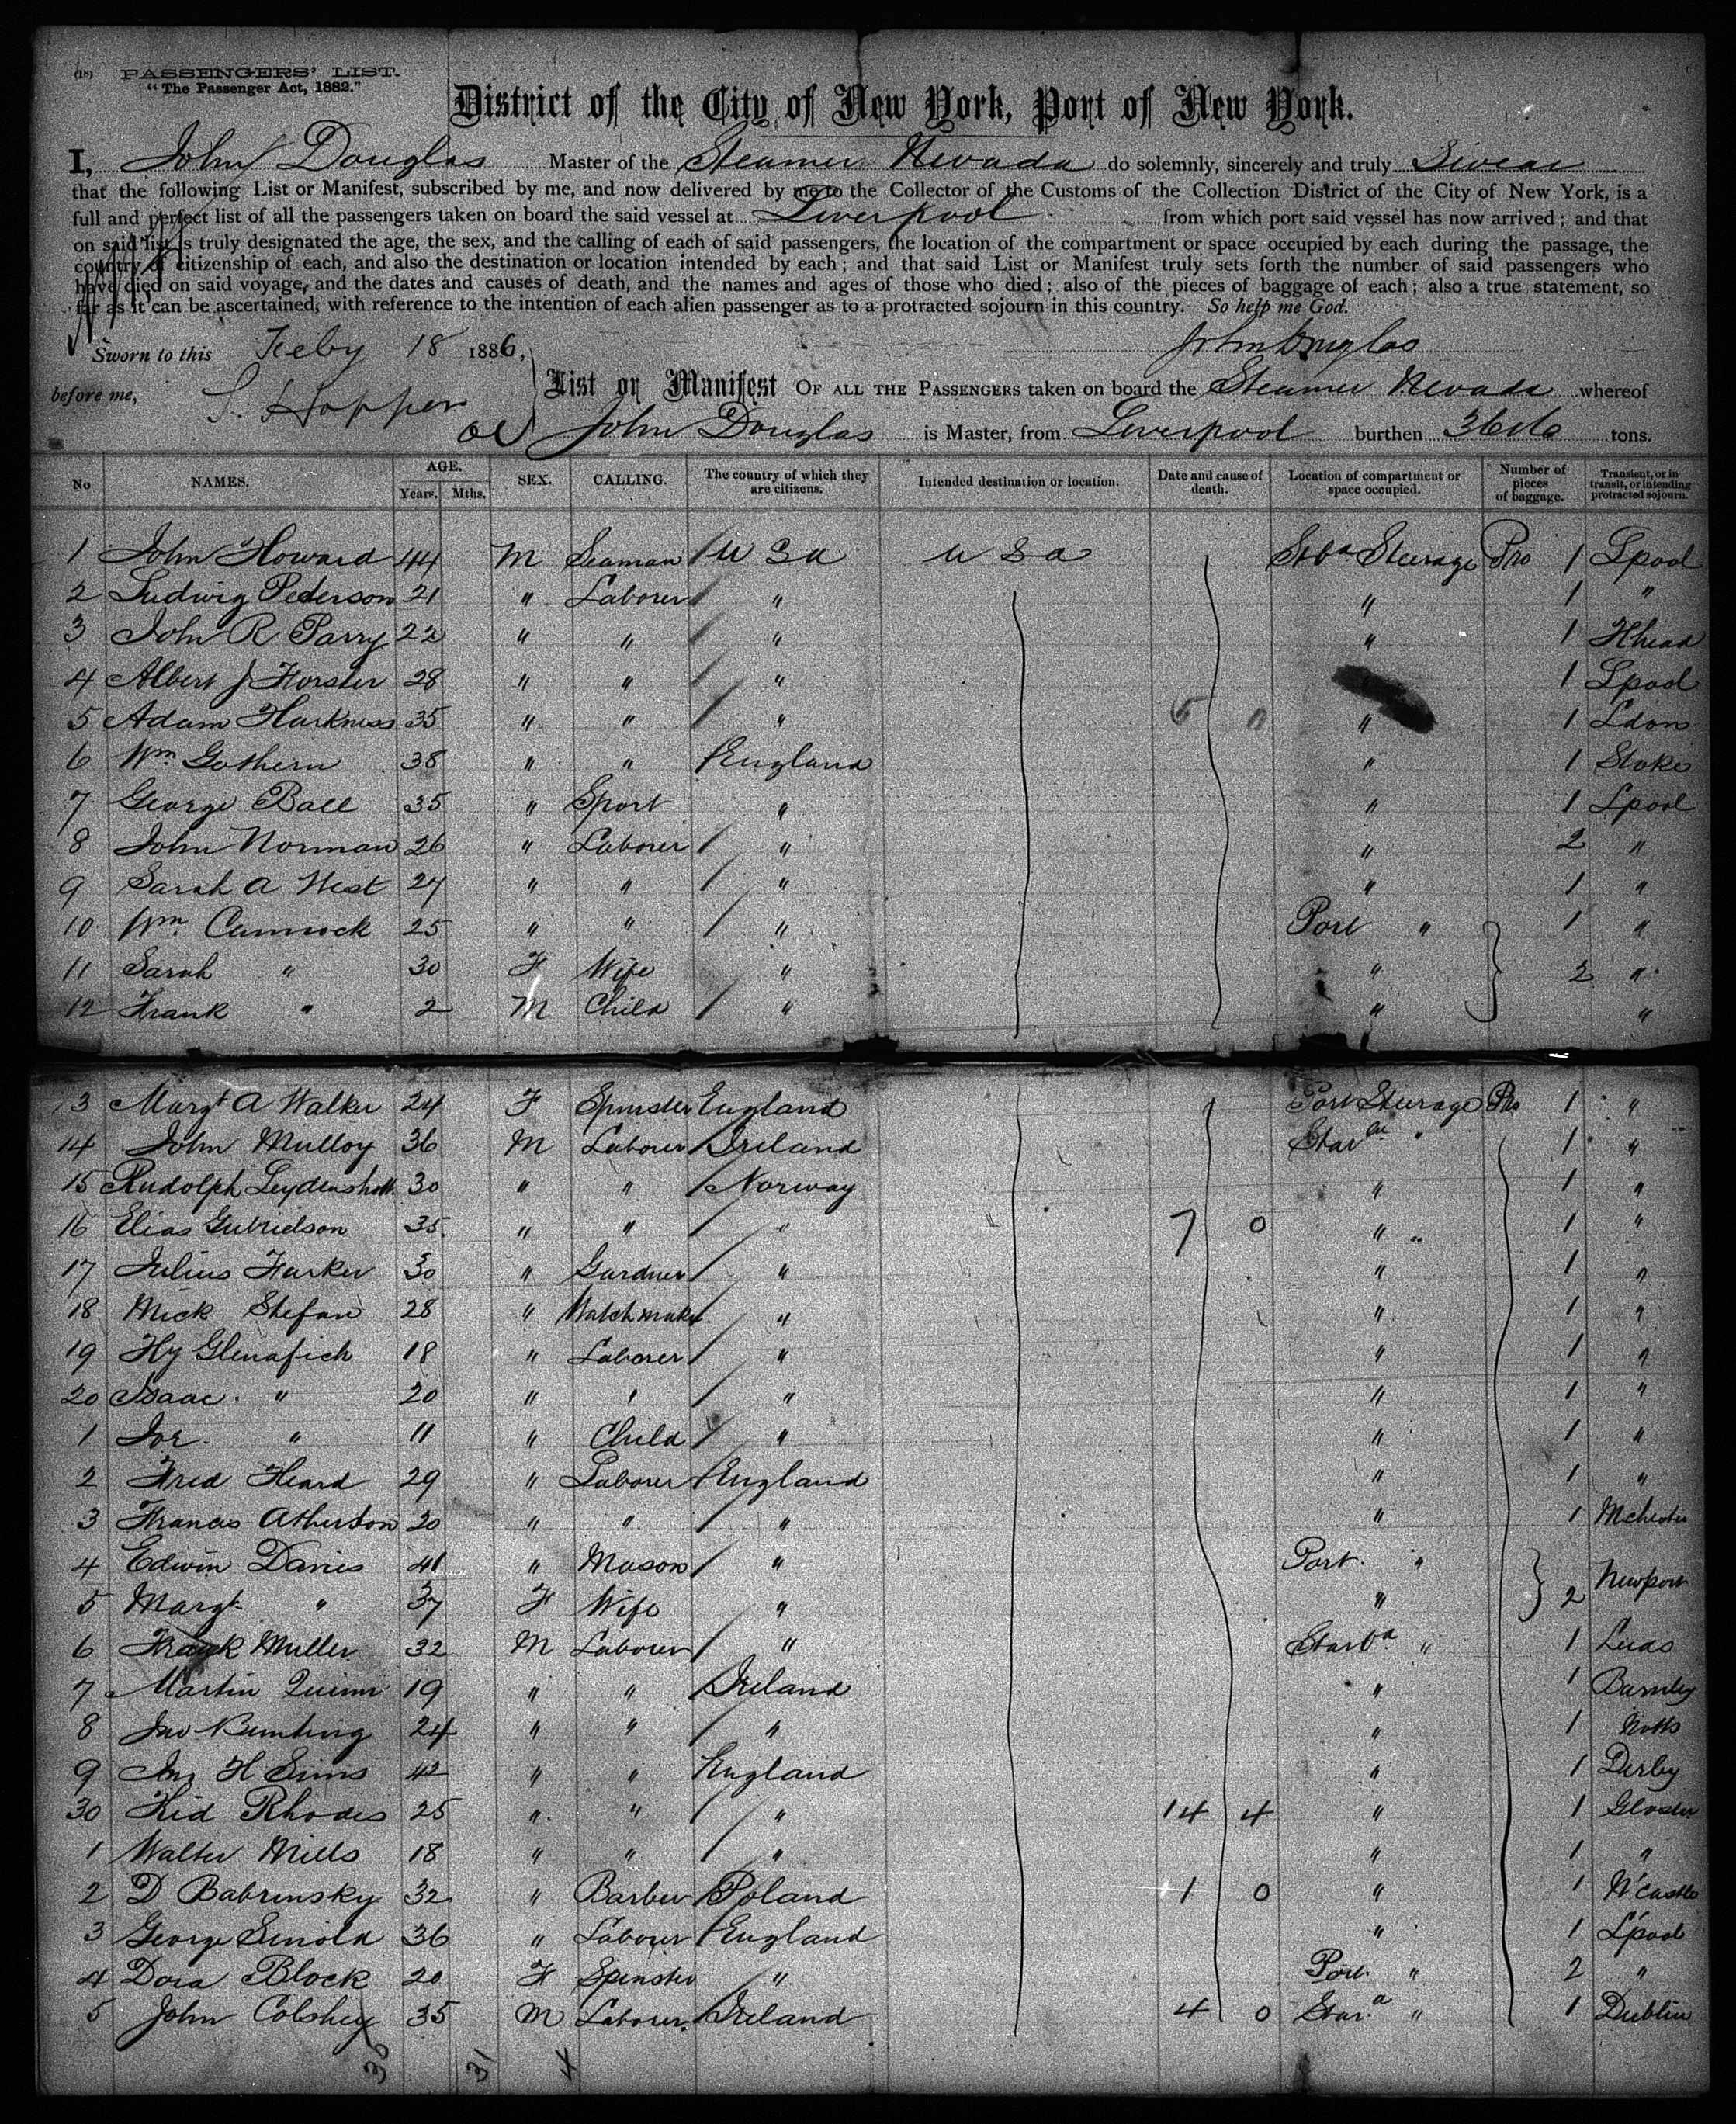 (18) PASSENGERS' LIST.
"The Passenger Act, 1882."
District of the City of New York, Port of New York.
I, John Douglas Master of the Steamer Nevada do solemnly, sincerely and truly Swear
that the following List or Manifest, subscribed by me, and now delivered by me to the Collector of the Customs of the Collection District of the City of New York, is a
full and perfect list of all the passengers taken on board the said vessel at Liverpool from which port said vessel has now arrived; and that
on said list is truly designated the age, the sex, and the calling of each of said passengers, the location of the compartment or space occupied by each during the passage, the
country of citizenship of each, and also the destination or location intended by each; and that said List or Manifest truly sets forth the number of said passengers who
have died on said voyage, and the dates and causes of death, and the names and ages of those who died; also of the pieces of baggage of each; also a true statement, so
far as it can be ascertained, with reference to the intention of each alien passenger as to a protracted sojourn in this country. So help me God.
Sworn to this Feby 18 1886, John Douglas
before me, S. Hopper List or Manifest OF ALL THE PASSENGERS taken on board the Steamer Nevada whereof
John Douglas is Master, from Liverpool burthen 3616 tons.
No NAMES. AGE. Years. Mths. SEX. CALLING. The country of which they are citizens. Intended destination or location. Date and cause of death. Location of compartment or space occupied. Number of pieces of baggage. Transient, or in transit, or intending protracted sojourn.
1 John Howard 44 M Seaman U S a U S a Stbd Steerage Pro 1 Lpool
2 Ludwig Pederson 21 " Laborer " " 1 "
3 John R Parry 22 " " " " 1 Hhead
4 Albert J Forster 28 " " " 1 Lpool
5 Adam Harkness 35 " " " 6 0 " 1 Ldon
6 Wm Gothern 38 " " England " 1 Stoke
7 George Ball 35 " Sport " " 1 Lpool
8 John Norman 26 " Laborer " " 2 "
9 Sarah A West 27 " " " " 1 "
10 Wm Cammock 25 " " " Port " 1 "
11 Sarah " 30 F Wife " " 2 "
12 Frank " 2 M Child " " "
13 Margt A Walker 24 F Spinster England Port Steerage Pro 1 "
14 John Mulloy 36 M Laborer Ireland Star " 1 "
15 Rudolph 30 " " Norway " 1 "
16 Elias 35 " " " 7 0 " " 1 "
17 Julius Farker 30 " Gardner " " 1 "
18 Mick Stefan 28 " Watchmaker " " 1 "
19 Hy Glenafich 18 " Laborer " " 1 "
20 Isaac " 20 " " " " 1 "
1 " 11 " Child " " 1 "
2 Fred Heard 29 " Laborer England " 1 "
3 Francis Atherton 20 " " " " 1 Mchester
4 Edwin Davies 41 " Mason " Port " Newport
5 Margt " 37 F Wife " " 2
6 Frank Miller 32 M Laborer " Starbd " 1 Leeds
7 Martin Quinn 19 " " Ireland " 1 Barnley
8 Jno Bunting 24 " " " " 1 Notts
9 Jno H Sims 42 " " England " 1 Derby
30 Fred Rhodes 25 " " " 14 4 " 1 Gloster
1 Walter Mills 18 " " " " 1 "
2 D Babrensky 32 " Barber Poland 1 0 " 1 N'castle
3 George 36 " Laborer England " 1 L'pool
4 Dora Block 20 F Spinster " Port " 2 "
5 John Colshey 35 M Laborer Ireland 4 0 Star " 1 Dublin
31 4